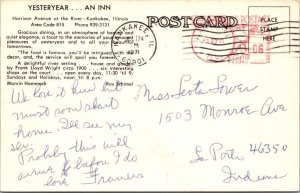 YESTERYEAR. . .AN INN
Harrison Avenue at the River - Kankakee, Illinois
Area Code 815 Phone 939-5131
Gracious dining, in an atmosphere of beauty and
quiet elegance, a toast to the memories and
pleasure of yesteryear and to all your beautiful
tomorrows.
"The food is fabulous, you'll be intrigued with the
decor, and, the service will spoil you forever."
A distinguished home - and house by
Frank Lloyd Wright circa 1900 - six interesting
shops on the court . . . open every day, 11:30 'til 9,
Sundays and Holidays, noon 'til 8 pm.
Marvin Hammack Ray Schimel
POST CARD
PLACE
STAMP
HERE
KANKAKEE, IL
60901
1971
U.S. POSTAGE
.06
We love it here but
must soon start
home. I'll see my
Probably this will
arrive before I do
love Frances
Miss Leota Tower
1503 Monroe Ave
La Porte 46350
Indiana